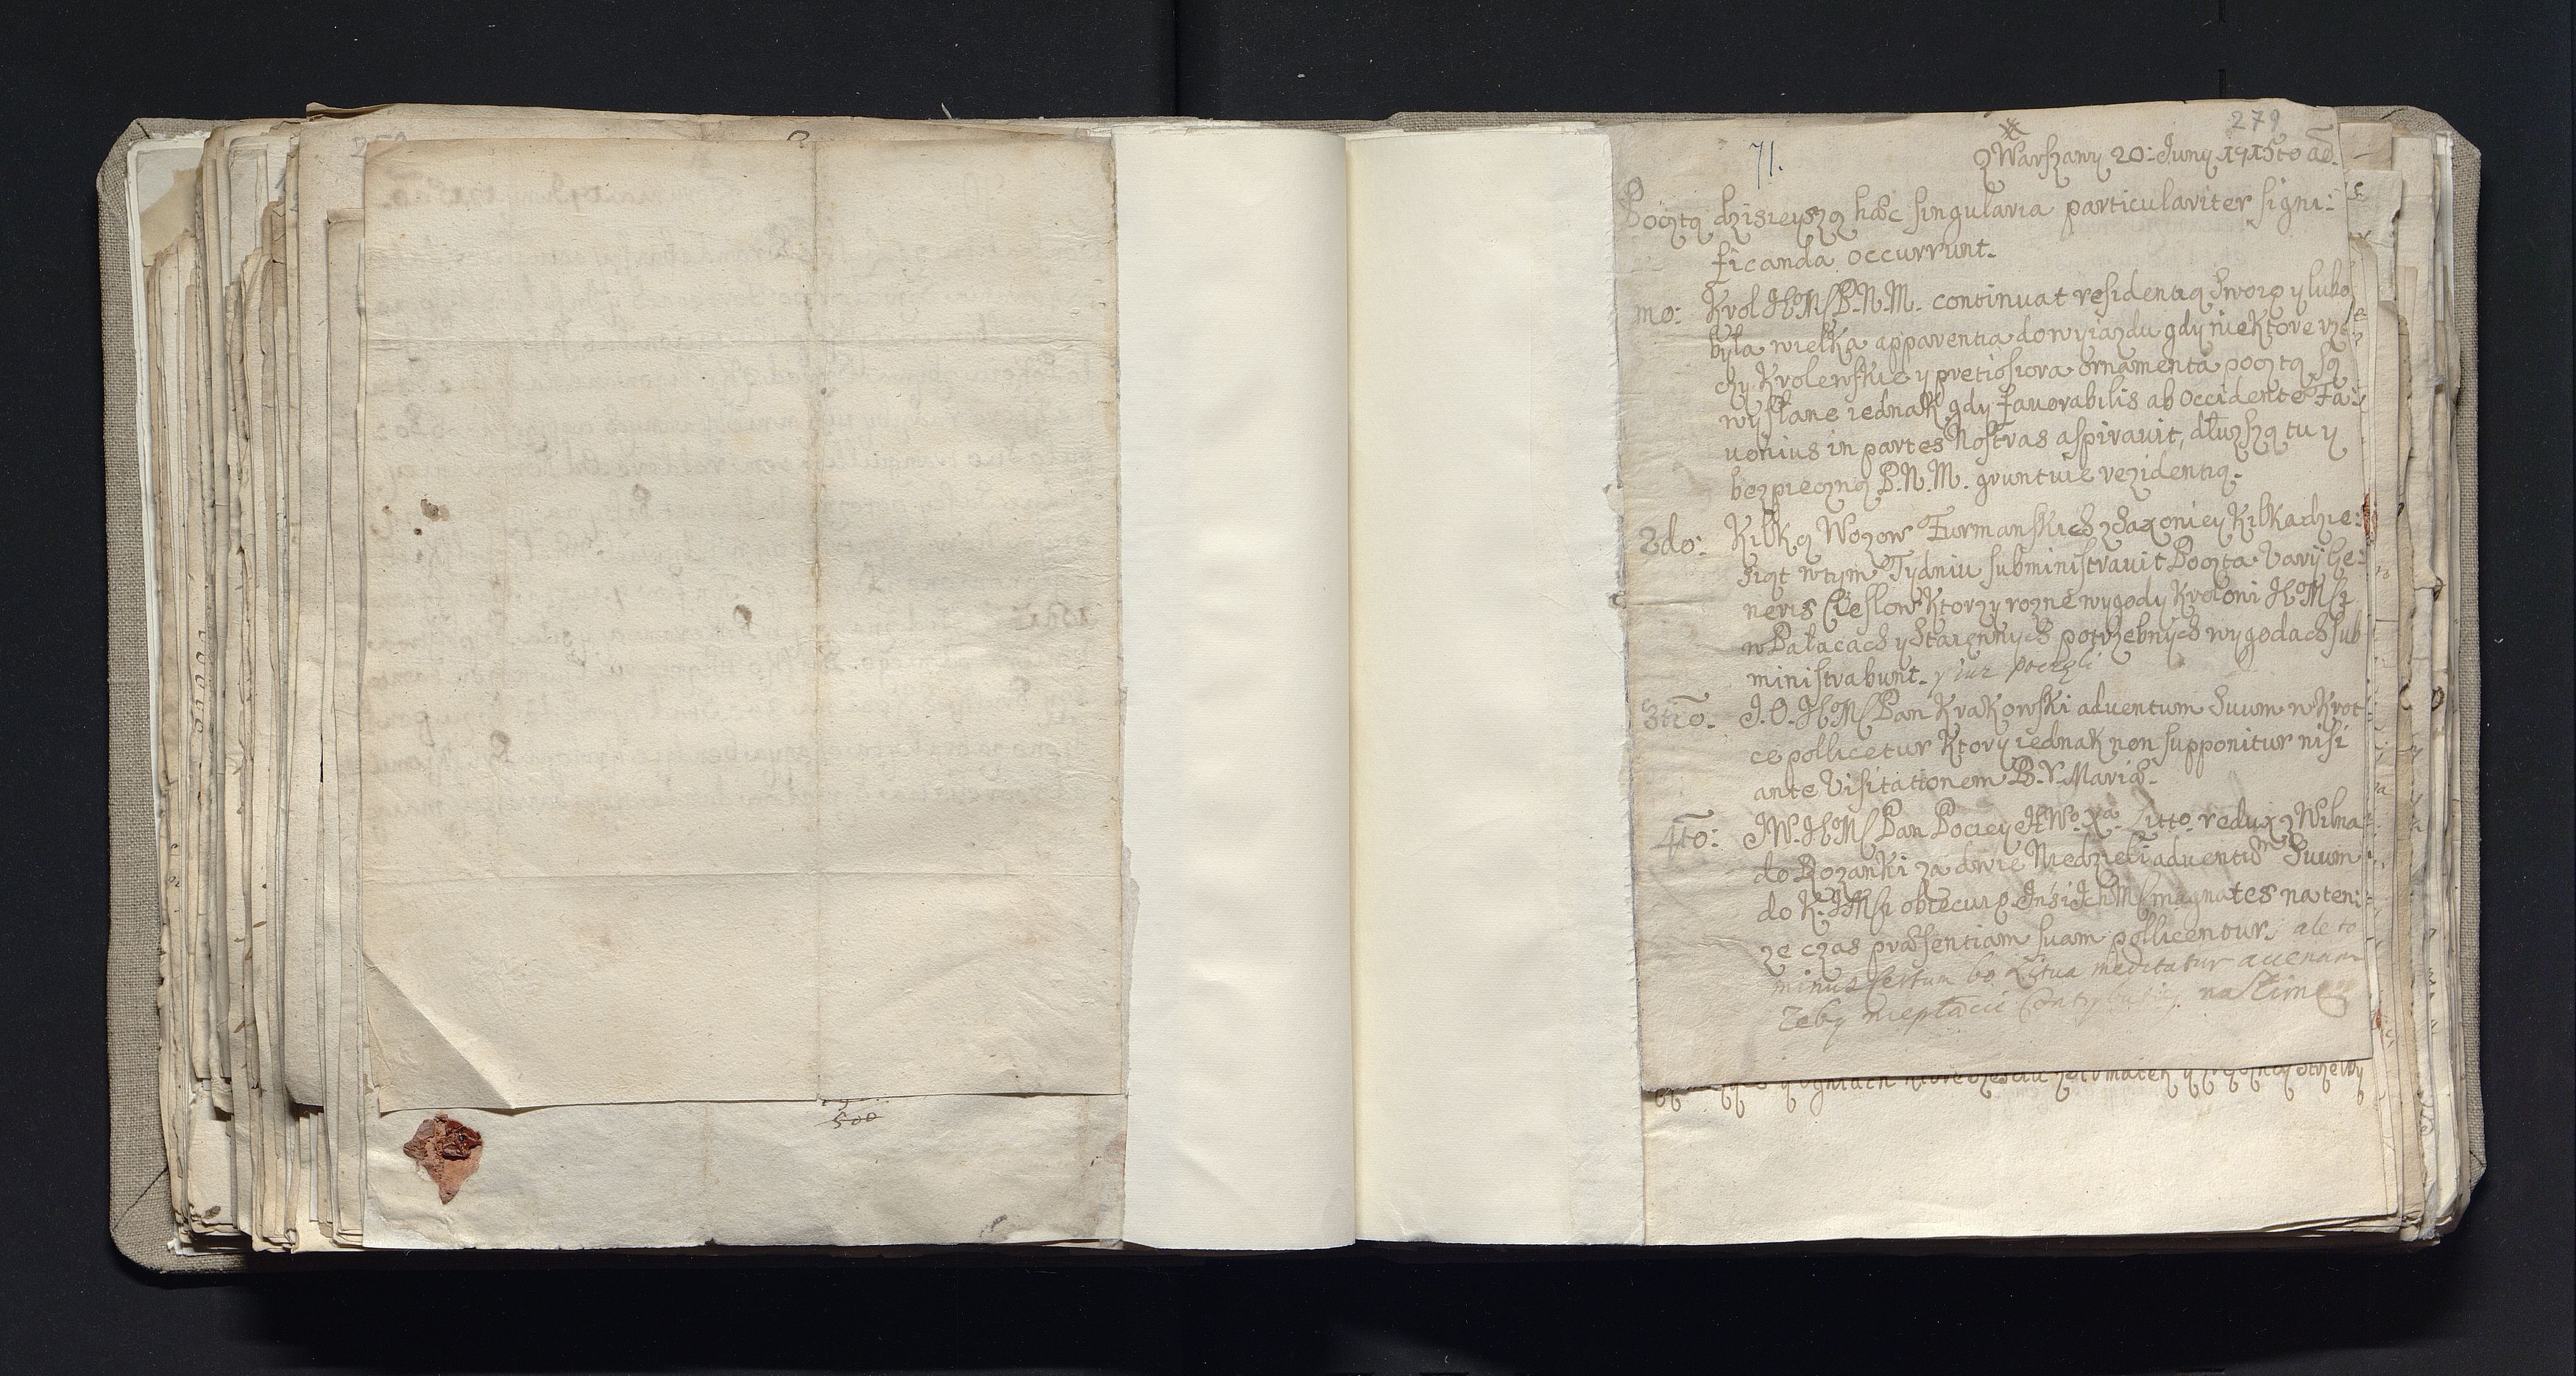 279
71.
z Warszawy 20: Juny 1715to ad.
Pocztą dzisieyszą hæc singularia particulariter signi:
ficanda occurrunt.
mo: Krol JEoMſ P.N.M. continuat residentią Swoią y lubo
była wielka apparentia do wyiazdu gdy niektore rze
czy Krolewskie y pretiosiora ornamenta pocztą są
wysłane iednak gdy favorabilis ab Occidente Fa:
uonius in partes Nostras aspirauit, dłuzszą tu y
bezpieczną P.N.M. gruntuie rezidentią.
2do: Kilką Wozow Furmanskich z Saxoniey Kilkadzie:
siąt w tym Tydniu subministrauit Poczta Varij Ge:
neris Cieslow Ktorzy rozne wygody Krolowi JEoMſi
w Pałacach y Staiennych potrzebnych wygodach sub
ministrabunt. y iuz poczęli
3tio: J.O.JEoMſ Pan Krakowski aduentum Suum w Krot:
ce pollicetur Ktory iednak non supponitur nisi
ante Visitationem B.V. Mariæ.
4to: JW. JEoMſ Pan Pociey HWo. Xa Litto. redux z Wilna
do Rozanki za dwie Niedzieli aduentum Suum
do K. JMſi obiecuie. Insi Ich Mſ magnates na ten:
ze czas præsentiam suam pollicentur. ale to
minus certum bo Litua meditatur auenam
zeby niepłacic
500